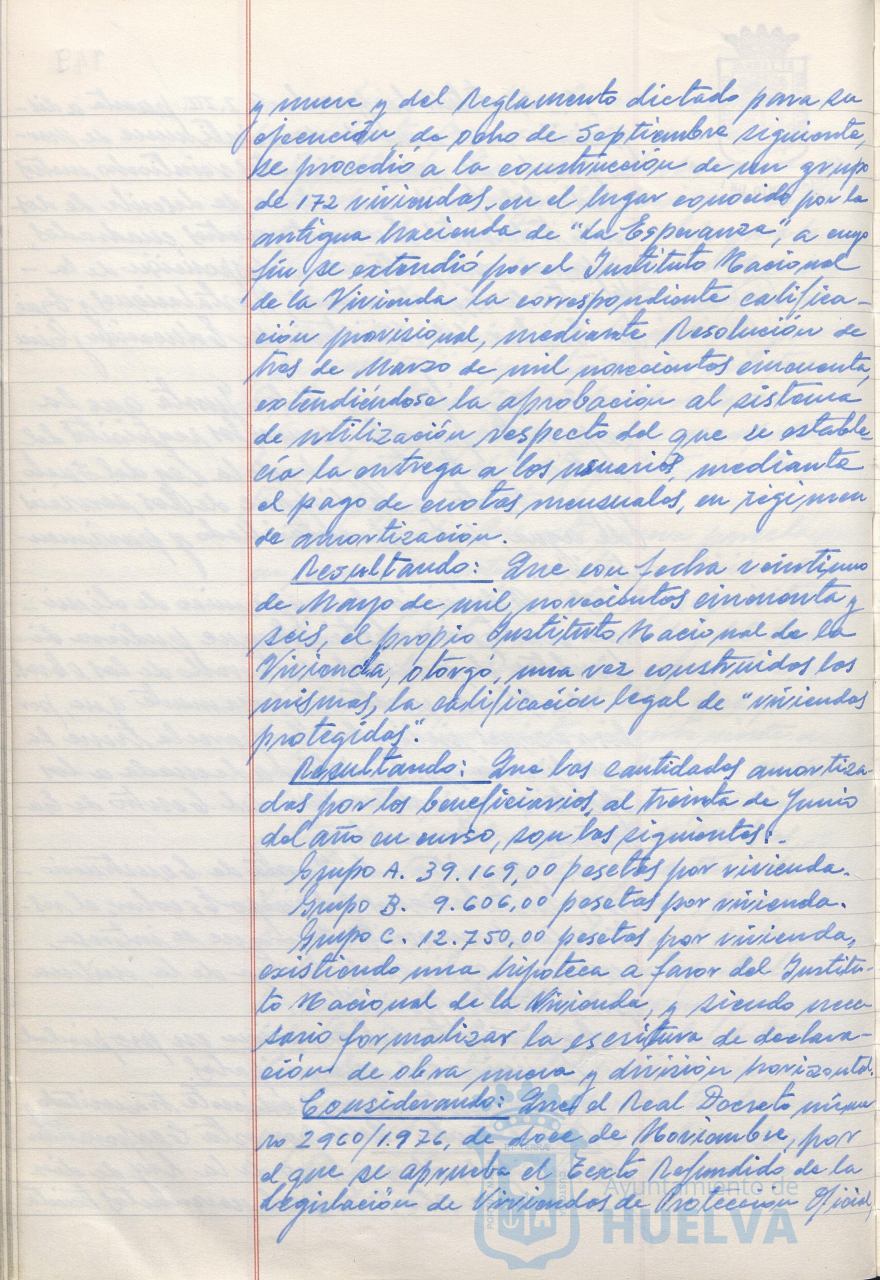 y nueve y del Reglamento dictado para su
ejecución, de ocho de Septiembre siguiente,
se procedió a la construcción de un grupo
de 172 viviendas, en el lugar conocido por la
antigua hacienda de "La Esperanza", a cuyo
fin se extendió por el Instituto Nacional
de la Vivienda la correspondiente califica-
ción provisional, mediante Resolución de
tres de Marzo de mil novecientos cincuenta,
extendiéndose la aprobación al sistema
de utilización respecto del que se estable-
cía la entrega a los usuarios, mediante
el pago de cuotas mensuales, en régimen
de amortización.
Resultando: Que con fecha veintiuno
de Mayo de mil novecientos cincuenta y
seis, el propio Instituto Nacional de la
Vivienda, otorgó, una vez construidos los
mismos, la calificación legal de "viviendas
protegidas".
Resultando: Que las cantidades amortiza-
das por los beneficiarios, al treinta de Junio
del año en curso, son las siguientes:
Grupo A. 39.169,00 pesetas por vivienda.
Grupo B. 9.606,00 pesetas por vivienda.
Grupo C. 12.750,00 pesetas por vivienda,
existiendo una hipoteca a favor del Institu-
to Nacional de la Vivienda, y siendo nece-
sario formalizar la escritura de declara-
ción de obra nueva y división horizontal.
Considerando: Que el Real Decreto núme-
ro 2960/1.976, de doce de Noviembre, por
el que se aprueba el Texto Refundido de la
Legislación de Viviendas de Protección Oficial,
Ayuntamiento de
HUELVA